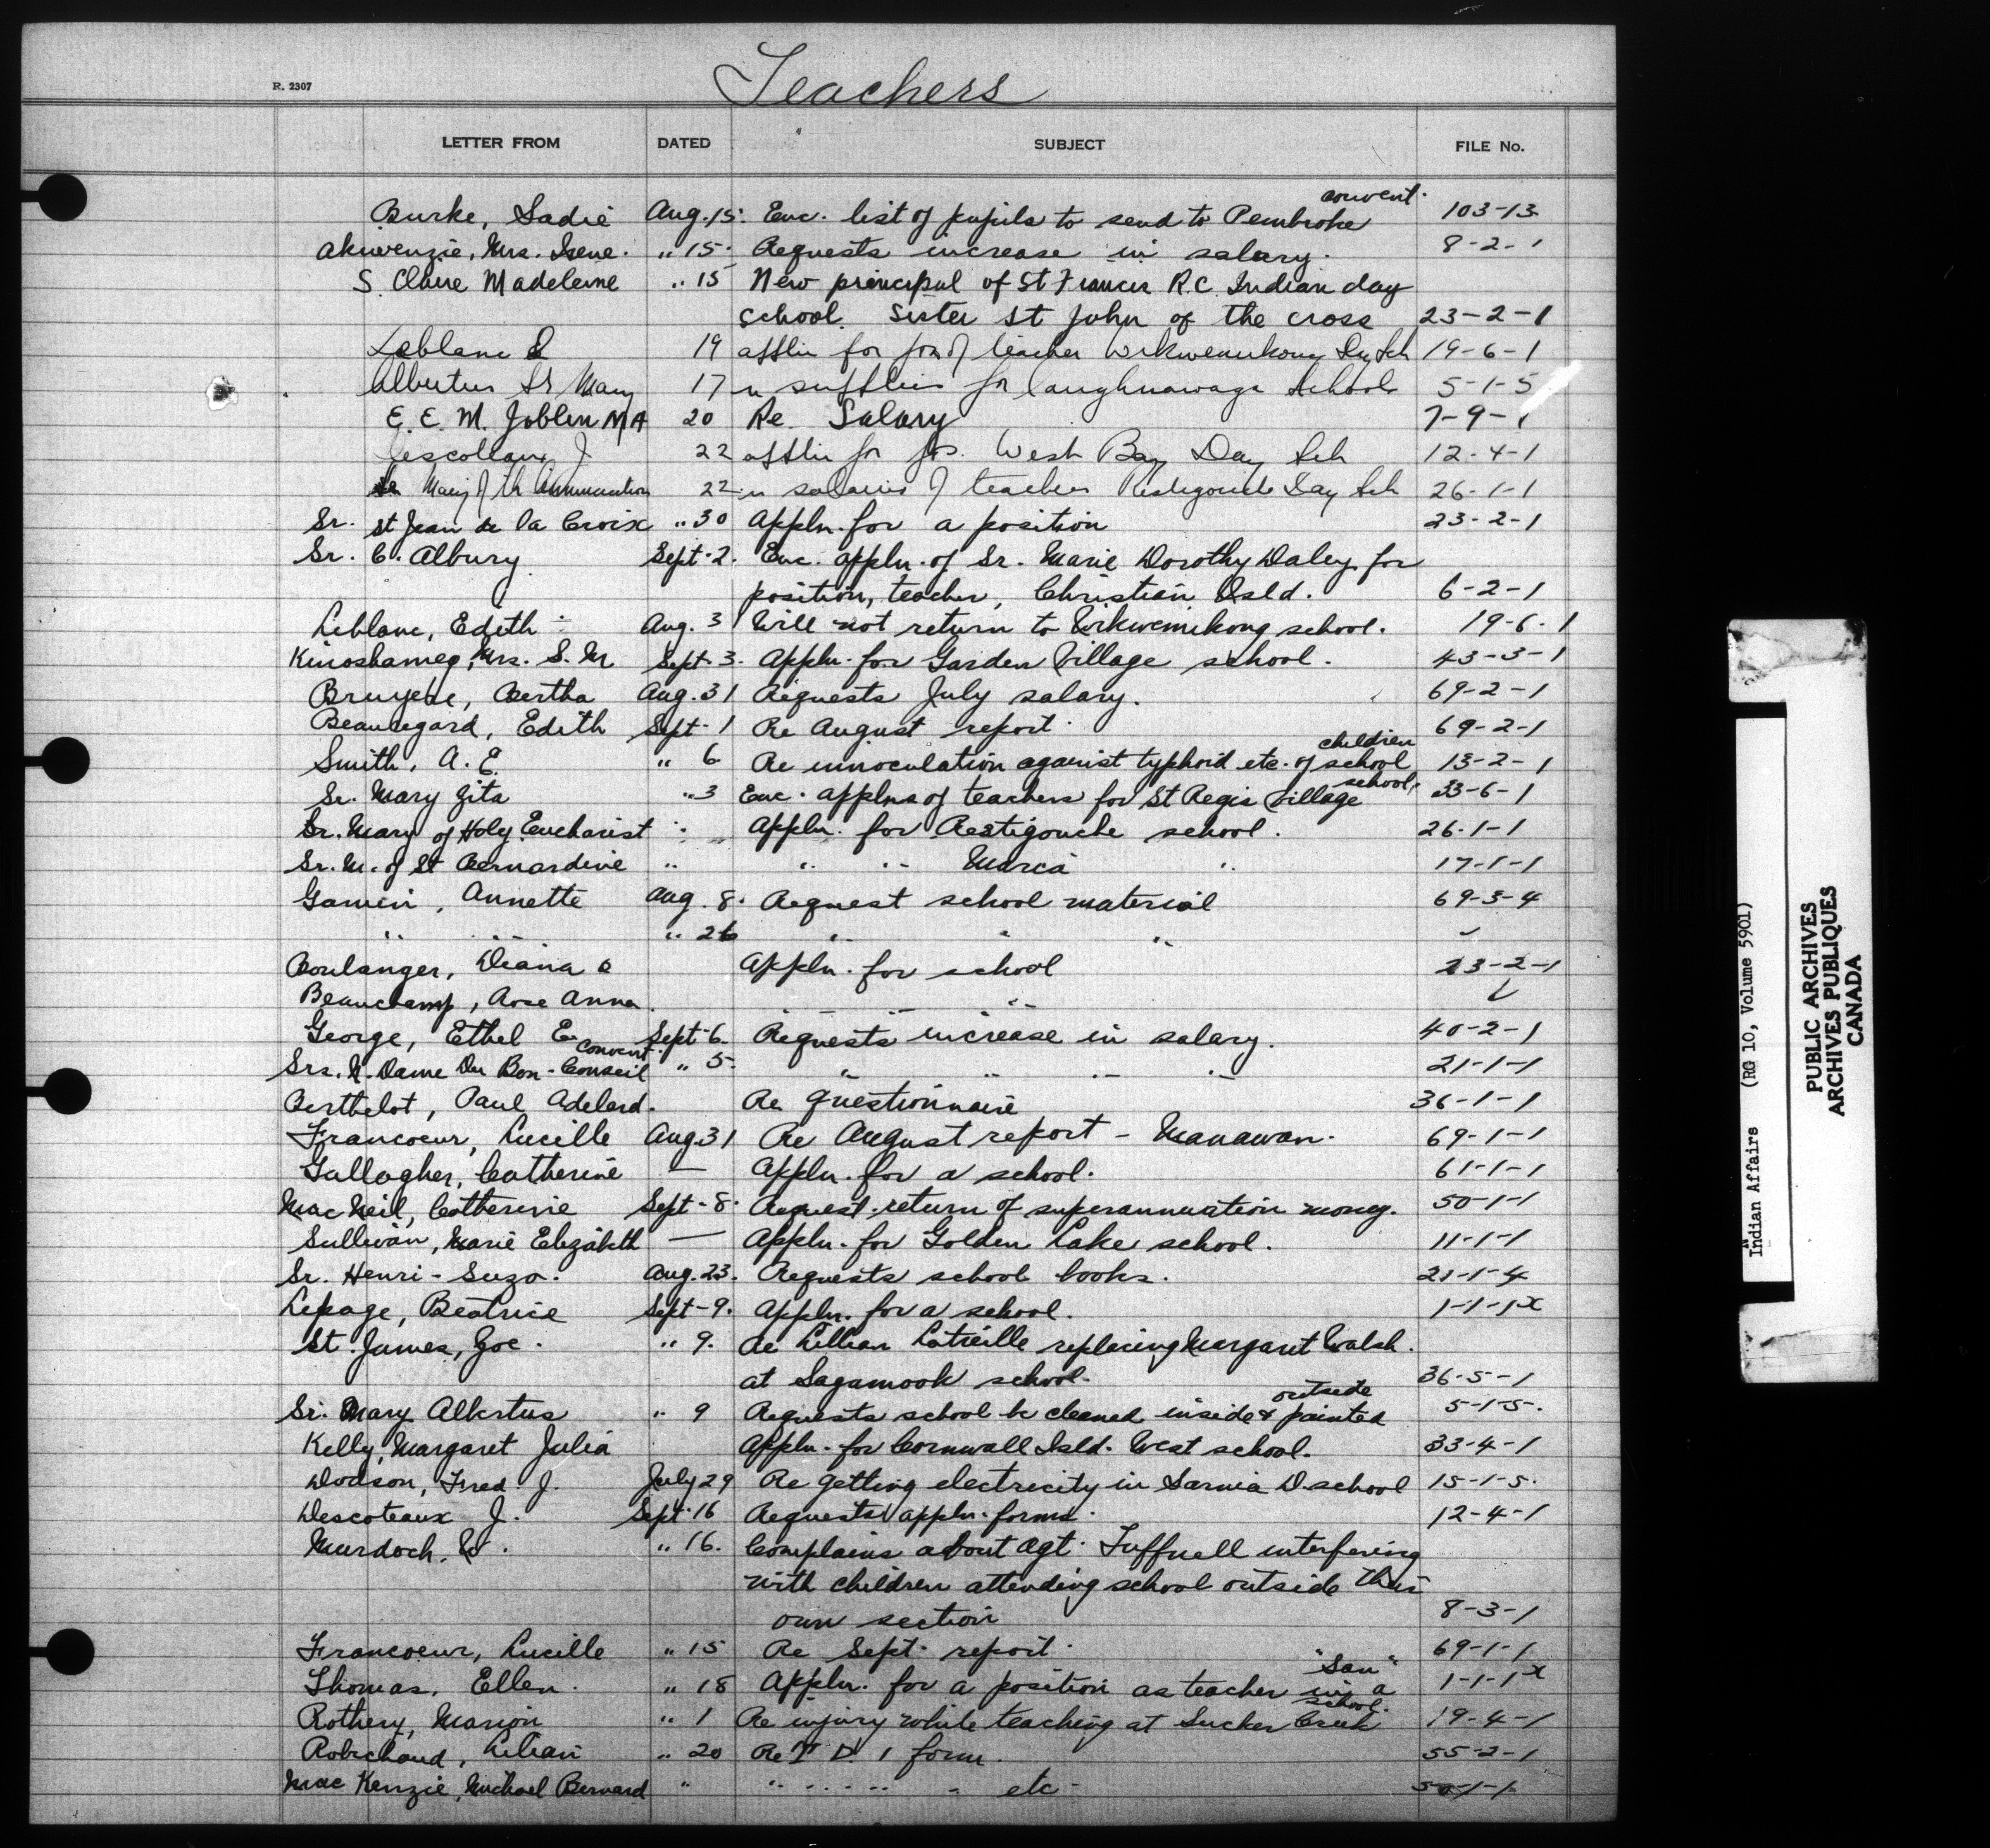 Teachers
R. 2307
LETTER FROM DATED SUBJECT FILE No.
convent.
Burke, Sadie Aug. 15. Enc. list of pupils to send to Pembroke 103-13
Akiwenzie, Mrs. Irene. " 15. Requests increase in salary. 8-2-1
S. Claire Madeleine " 15 New principal of St Francis R.C. Indian day
school. Sister St John of the cross 23-2-1
Leblanc 19 applin for pos of teacher Wikwemikong Dy Sch 19-6-1
Albertus Sr Mary 17 re supplies for Caughnawaga School 5-1-5
E. E. M. Joblin MA 20 Re. Salary 7-9-1
Descoteaux J 22 applin for pos. West Bay Day Sch 12-4-1
Sr Mary of th Annunciation 22 re salaries of teachers Restigouche Day Sch 26-1-1
Sr. St Jean de la Croix " 30 Appln. for a position 23-2-1
Sr. C. Albury Sept. 2. Enc. appln. of Sr. Marie Dorothy Daley for
position, teacher, Christian Isld. 6-2-1
Leblanc, Edith Aug. 3 Will not return to Wikwemikong school. 19-6-1
Kinoshameg, Mrs. S. M Sept. 3. Appln. for Garden Village school. 43-3-1
Bruyere, Bertha Aug. 31 Requests July salary. 69-2-1
Beauregard, Edith Sept. 1 Re August report. 69-2-1
children
Smith, A. E. " 6 Re innoculation against typhoid etc. of school 13-2-1
school.
Sr. Mary Zita " 3 Enc. applns of teachers for St Regis Village 33-6-1
Sr. Mary of Holy Eucharist " Appln. for Restigouche school. 26-1-1
Sr. M. of St Bernardine " " " Maria " 17-1-1
Gamin, Annette Aug. 8. Request school material 69-3-4
" " " 26 " "
Boulanger, Diana Appln. for school 23-2-1
Beauchamp, Rose Anna "
George, Ethel E. Sept. 6. Requests increase in salary. 40-2-1
convent
Srs. N. Dame Du Bon-Conseil " 5. " " " " 21-1-1
Berthelot, Paul Adelard. Re questionnaire 36-1-1
Francoeur, Lucille Aug 31 Re August report - Manawan. 69-1-1
Gallagher, Catherine — Appln. for a school. 61-1-1
MacNeil, Catherine Sept. 8. Request return of superannuation money. 50-1-1
Sullivan, Marie Elizabeth — Appln. for Golden Lake school. 11-1-1
Sr. Henri-Suzo. Aug. 23. Requests school books. 21-1-4
Lepage, Beatrice Sept-9. Appln. for a school. 1-1-1x
St. James, Zoe. " 9. Re Lillian Latreille replacing Margaret Walsh.
at Sagamook school. 36-5-1
outside
Sr. Mary Albertus " 9 Requests school be cleaned inside & painted 5-1-5.
Kelly, Margaret Julia Appln. for Cornwall Isld. West school. 33-4-1
Dodson, Fred J. July 29 Re getting electricity in Sarnia D. school 15-1-5.
Descoteaux J. Sept. 16 Requests appln. forms. 12-4-1
Murdoch " 16. Complains about Agt. Tuffnell interfering
with children attending school outside their
own section 8-3-1
Francoeur, Lucille " 15 Re Sept. report. 69-1-1
"San"
Thomas, Ellen. " 18 Appln. for a position as teacher in a 1-1-1x
school.
Rothery, Marion " 1 Re injury while teaching at Sucker Creek 19-4-1
Robichaud, Lilian " 20 Re T. D. 1 form. 55-2-1
MacKenzie, Michael Bernard " " " " " etc. 50-1-1
Indian Affairs (RG 10, Volume 5901)
PUBLIC ARCHIVES
ARCHIVES PUBLIQUES
CANADA